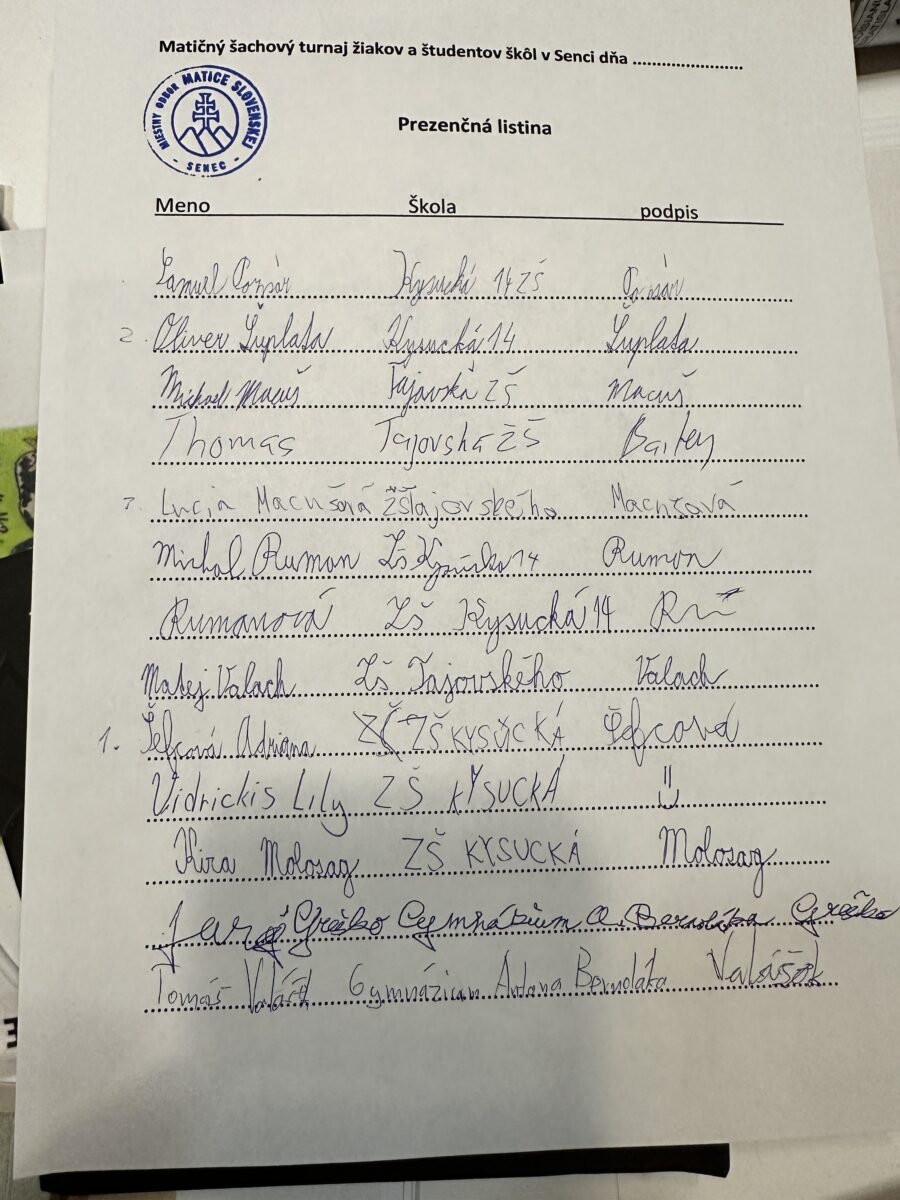 Matičný šachový turnaj žiakov a študentov škôl v Senci dňa ........................
MIESTNY ODBOR MATICE SLOVENSKEJ
- SENEC -
Prezenčná listina
Meno Škola podpis
Samuel Kysucká 14 ZŠ
2. Oliver Šuplata Kysucká 14 Šuplata
Michael Macuš Tajovská ZŠ Macuš
Thomas Tajovska ZŠ Bailey
3. Lucia Macušová ZŠTajovského Macušová
Michal Ruman ZŠ Kysucka 14 Ruman
Rumanová ZŠ Kysucká 14
Matej Valach ZŠ Tajovského Valach
1. Šefcová Adriana ZŠ KYSUCKÁ Šefcová
Vidrickis Lily ZŠ KYSUCKÁ
Kira Molosag ZŠ KYSUCKÁ Molosag
Greško Gymnázium A. Bernoláka Greško
Tomáš Gymnázium Antona Bernoláka Valášek